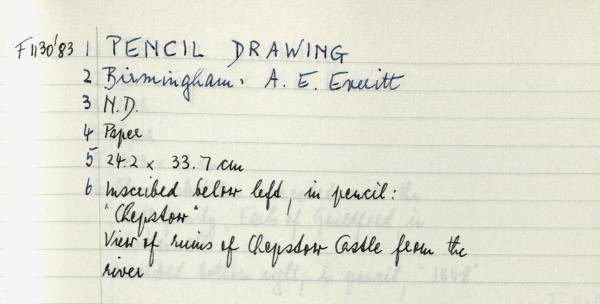 F1130'83 1 PENCIL DRAWING
2 Birmingham. A. E. Everitt
3 N.D.
4 Paper
5 24.2 x 33.7 cm
6 Inscribed below left, in pencil:
"Chepstow"
View of ruins of Chepstow Castle from the
river